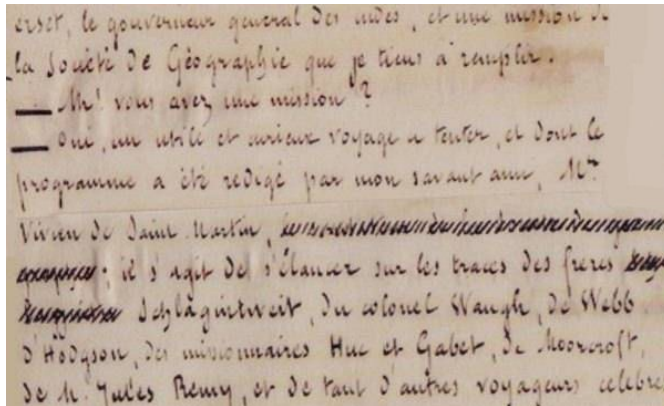 erset, le gouverneur général des indes, et une mission de
la Société de Géographie que je tiens à remplir.
— Ah! vous avez une mission?
— oui, un utile et curieux voyage a tenter, et dont le
programme a été redigé par mon savant ami, Mr.
Vivien de Saint Martin,
il s'agit de s'élancer sur les traces des freres
Schlagintweit, du colonel Waugh, de Webb
d'Hodgson, des missionnaires Huc et Gabet, de Moorcroft,
de M. Jules Remy, et de tant d'autres voyageurs célèbre